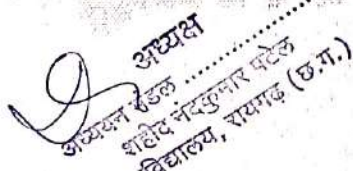 अध्यक्ष
अध्ययन मंडल ..................
शहीद नंदकुमार पटेल
विद्यालय, रायगढ़ (छ.ग.)